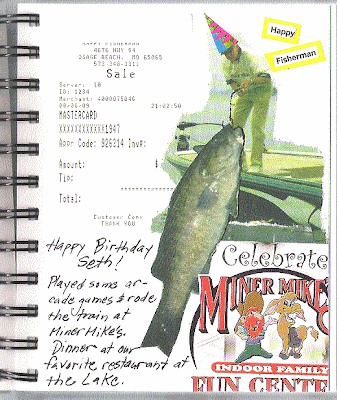 HAPPY FISHERMAN
4676 HWY 54
OSAGE BEACH, MO 65065
573-348-3311
Sale
Server: 10
ID: 1284
Merchant: 4000075046
08/06/09 21:02:50
MASTERCARD
XXXXXXXXXXXX1947
Appr Code: 926314 Inv#:
Amount: $
Tip:
Total:
Customer Copy
THANK YOU
Happy
Fisherman
Happy Birthday
Seth!
Played some ar-
cade games & rode
the train at
Miner Mike's.
Dinner at our
favorite restaurant at
the Lake.
Celebrate
MINER MIKE'S
INDOOR FAMILY
FUN CENTE